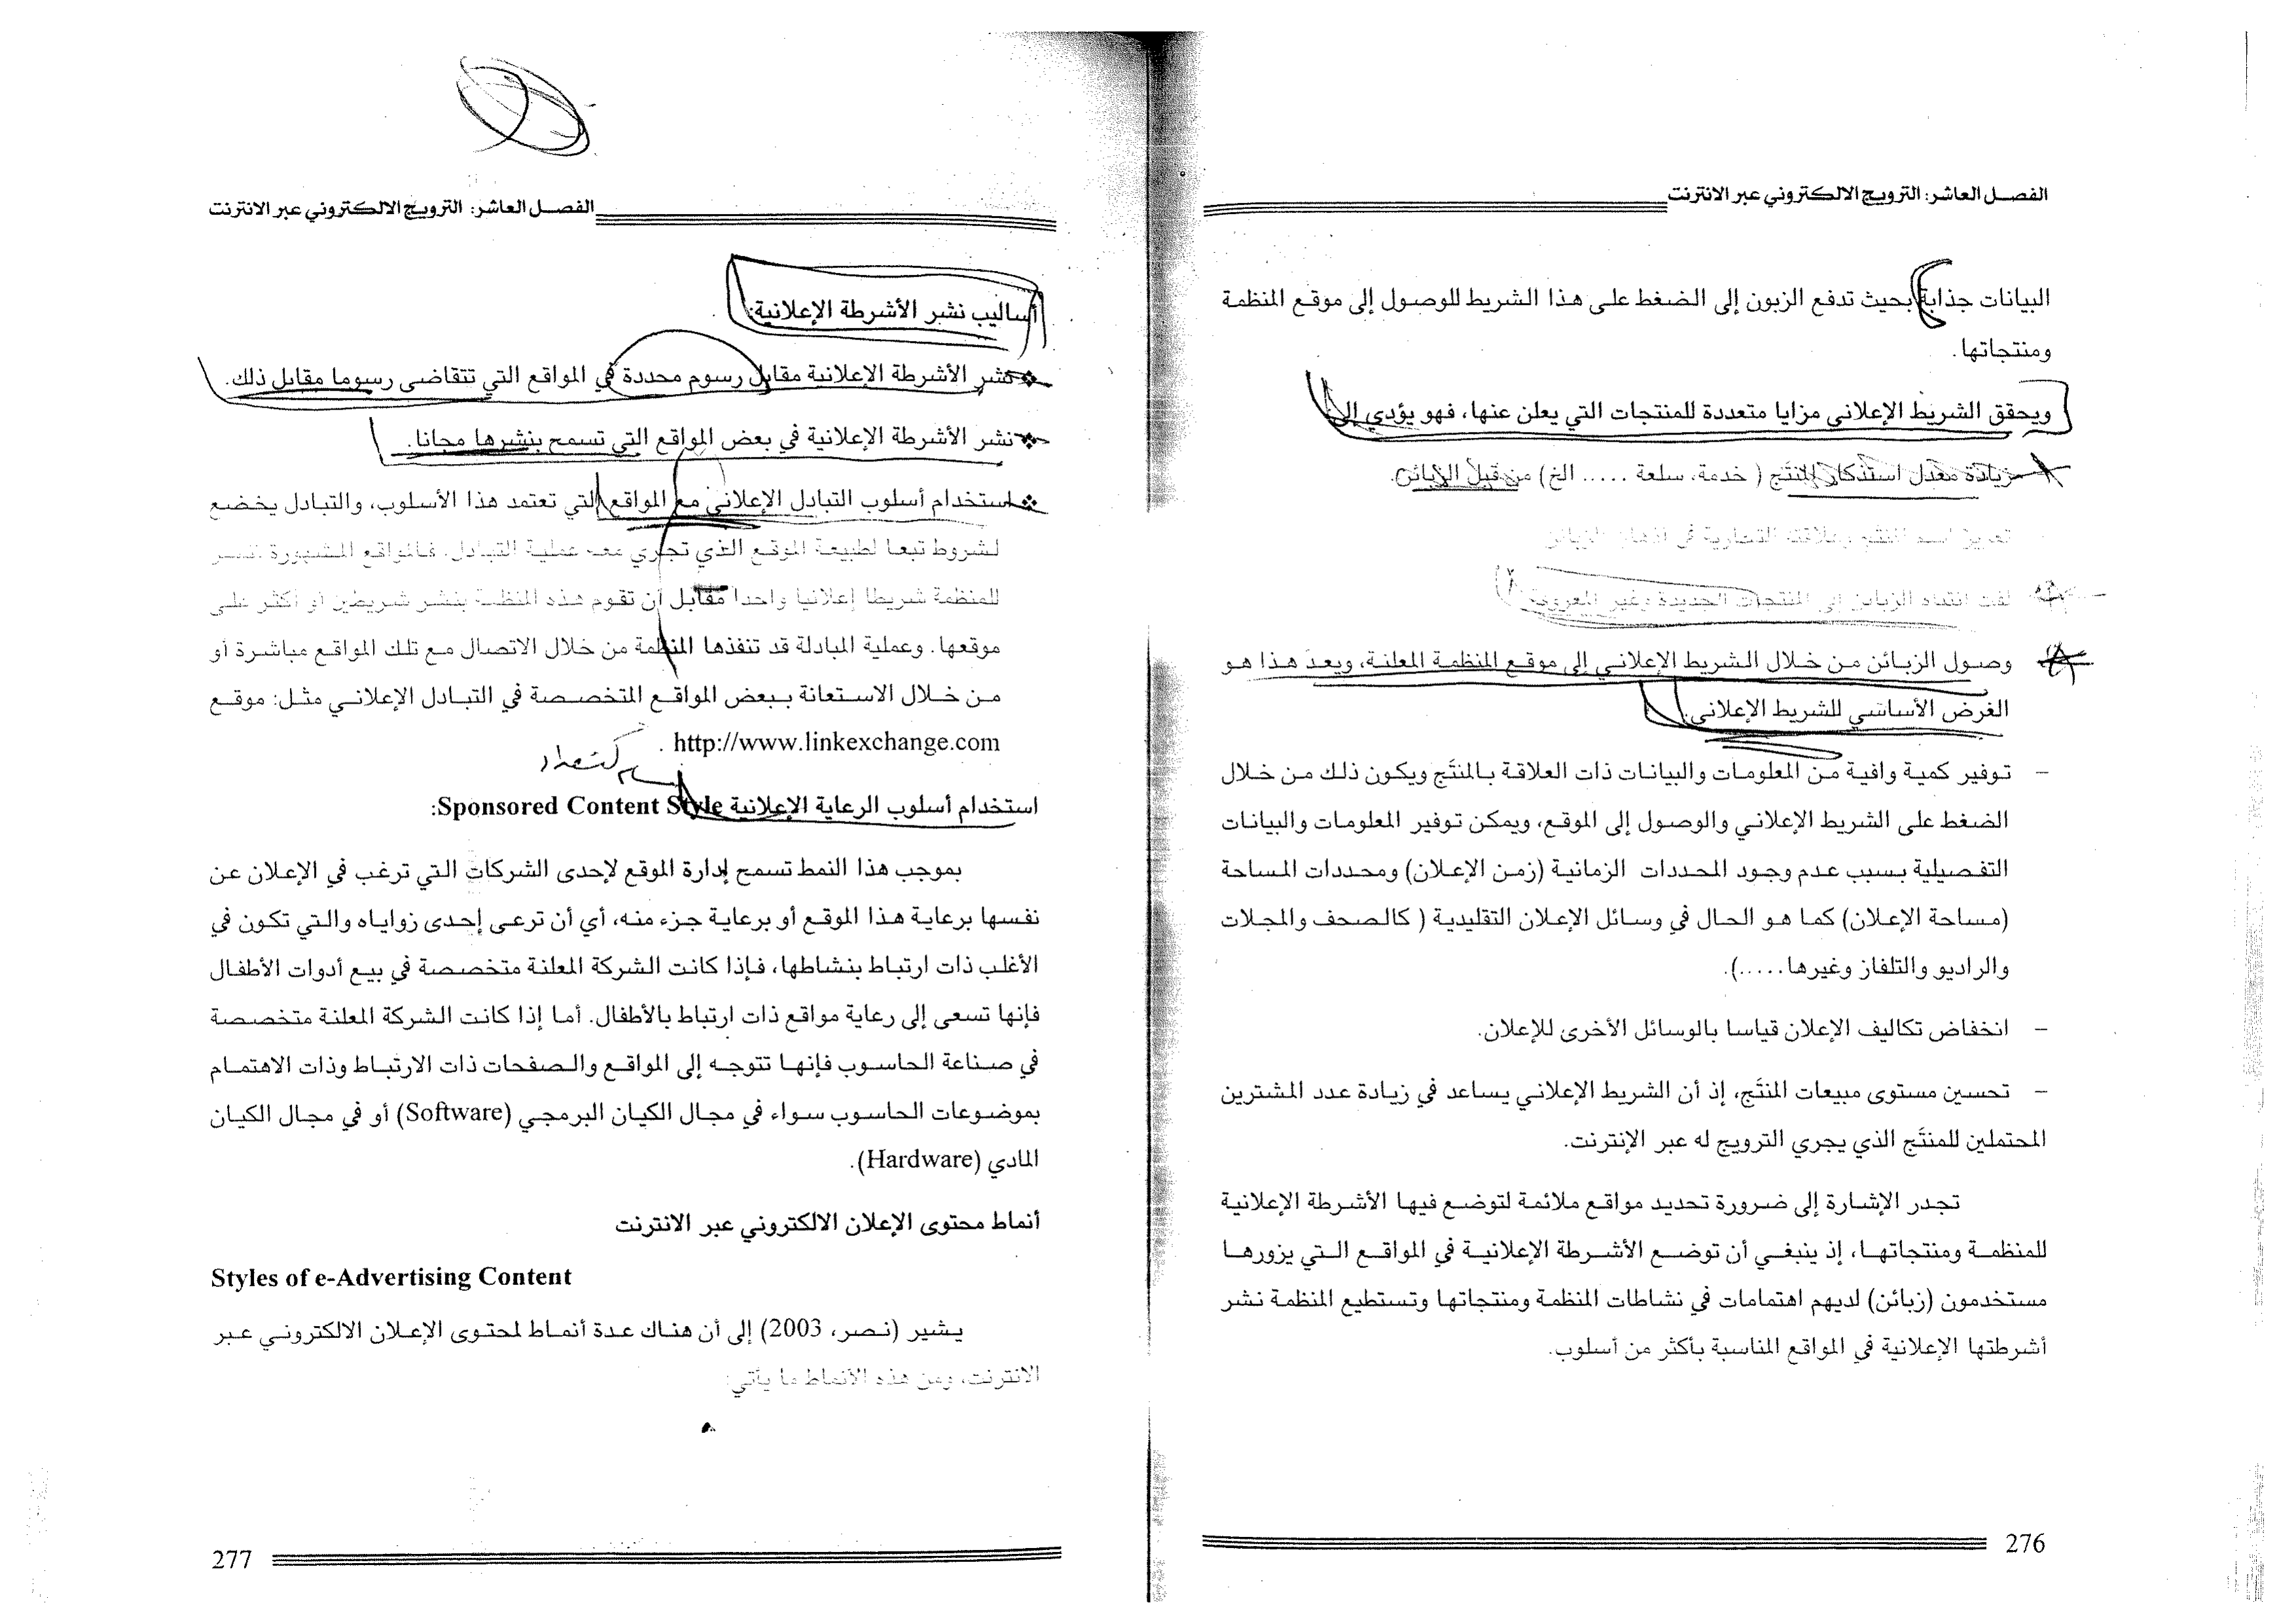 الفصل العاشر: الترويج الالكتروني عبر الانترنت
البيانات جذابة بحيث تدفع الزبون إلى الضغط على هذا الشريط للوصول إلى موقع المنظمة
ومنتجاتها.
ويحقق الشريط الإعلاني مزايا متعددة للمنتجات التي يعلن عنها، فهو يؤدي إلى
زيادة معدل استذكار المنتَج ( خدمة، سلعة ..... الخ) من قبل الزبائن.
تعزيز اسم المنتج وعلاقته التجارية في أذهان الزبائن
لفت انتباه الزبائن إلى المنتجات الجديدة وغير المعروفة
وصول الزبائن من خلال الشريط الإعلاني إلى موقع المنظمة المعلنة، ويعدّ هذا هو
الغرض الأساسي للشريط الإعلاني.
– توفير كمية وافية من المعلومات والبيانات ذات العلاقة بالمنتَج ويكون ذلك من خلال
الضغط على الشريط الإعلاني والوصول إلى الموقع، ويمكن توفير المعلومات والبيانات
التفصيلية بسبب عدم وجود المحددات الزمانية (زمن الإعلان) ومحددات المساحة
(مساحة الإعلان) كما هو الحال في وسائل الإعلان التقليدية ( كالصحف والمجلات
والراديو والتلفاز وغيرها.....).
– انخفاض تكاليف الإعلان قياسا بالوسائل الأخرى للإعلان.
– تحسين مستوى مبيعات المنتَج، إذ أن الشريط الإعلاني يساعد في زيادة عدد المشترين
المحتملين للمنتَج الذي يجري الترويج له عبر الإنترنت.
تجدر الإشارة إلى ضرورة تحديد مواقع ملائمة لتوضع فيها الأشرطة الإعلانية
للمنظمة ومنتجاتها، إذ ينبغي أن توضع الأشرطة الإعلانية في المواقع التي يزورها
مستخدمون (زبائن) لديهم اهتمامات في نشاطات المنظمة ومنتجاتها وتستطيع المنظمة نشر
أشرطتها الإعلانية في المواقع المناسبة بأكثر من أسلوب.
276
الفصل العاشر: الترويج الالكتروني عبر الانترنت
أساليب نشر الأشرطة الإعلانية:
❖ نشر الأشرطة الإعلانية مقابل رسوم محددة في المواقع التي تتقاضى رسوما مقابل ذلك.
❖ نشر الأشرطة الإعلانية في بعض المواقع التي تسمح بنشرها مجانا.
❖ استخدام أسلوب التبادل الإعلاني مع المواقع التي تعتمد هذا الأسلوب، والتبادل يخضع
لشروط تبعا لطبيعة الموقع الذي تجري معه عملية التبادل. فالمواقع المشهورة تنشر
للمنظمة شريطا إعلانيا واحدا مقابل أن تقوم هذه المنظمة بنشر شريطين أو أكثر على
موقعها. وعملية المبادلة قد تنفذها المنظمة من خلال الاتصال مع تلك المواقع مباشرة أو
من خلال الاستعانة ببعض المواقع المتخصصة في التبادل الإعلاني مثل: موقع
http://www.linkexchange.com .
استخدام أسلوب الرعاية الإعلانية Sponsored Content Style:
بموجب هذا النمط تسمح إدارة الموقع لإحدى الشركات التي ترغب في الإعلان عن
نفسها برعاية هذا الموقع أو برعاية جزء منه، أي أن ترعى إحدى زواياه والتي تكون في
الأغلب ذات ارتباط بنشاطها، فإذا كانت الشركة المعلنة متخصصة في بيع أدوات الأطفال
فإنها تسعى إلى رعاية مواقع ذات ارتباط بالأطفال. أما إذا كانت الشركة المعلنة متخصصة
في صناعة الحاسوب فإنها تتوجه إلى المواقع والصفحات ذات الارتباط وذات الاهتمام
بموضوعات الحاسوب سواء في مجال الكيان البرمجي (Software) أو في مجال الكيان
المادي (Hardware).
أنماط محتوى الإعلان الالكتروني عبر الانترنت
Styles of e-Advertising Content
يشير (نصر، 2003) إلى أن هناك عدة أنماط لمحتوى الإعلان الالكتروني عبر
الانترنت، ومن هذه الأنماط ما يأتي:
277